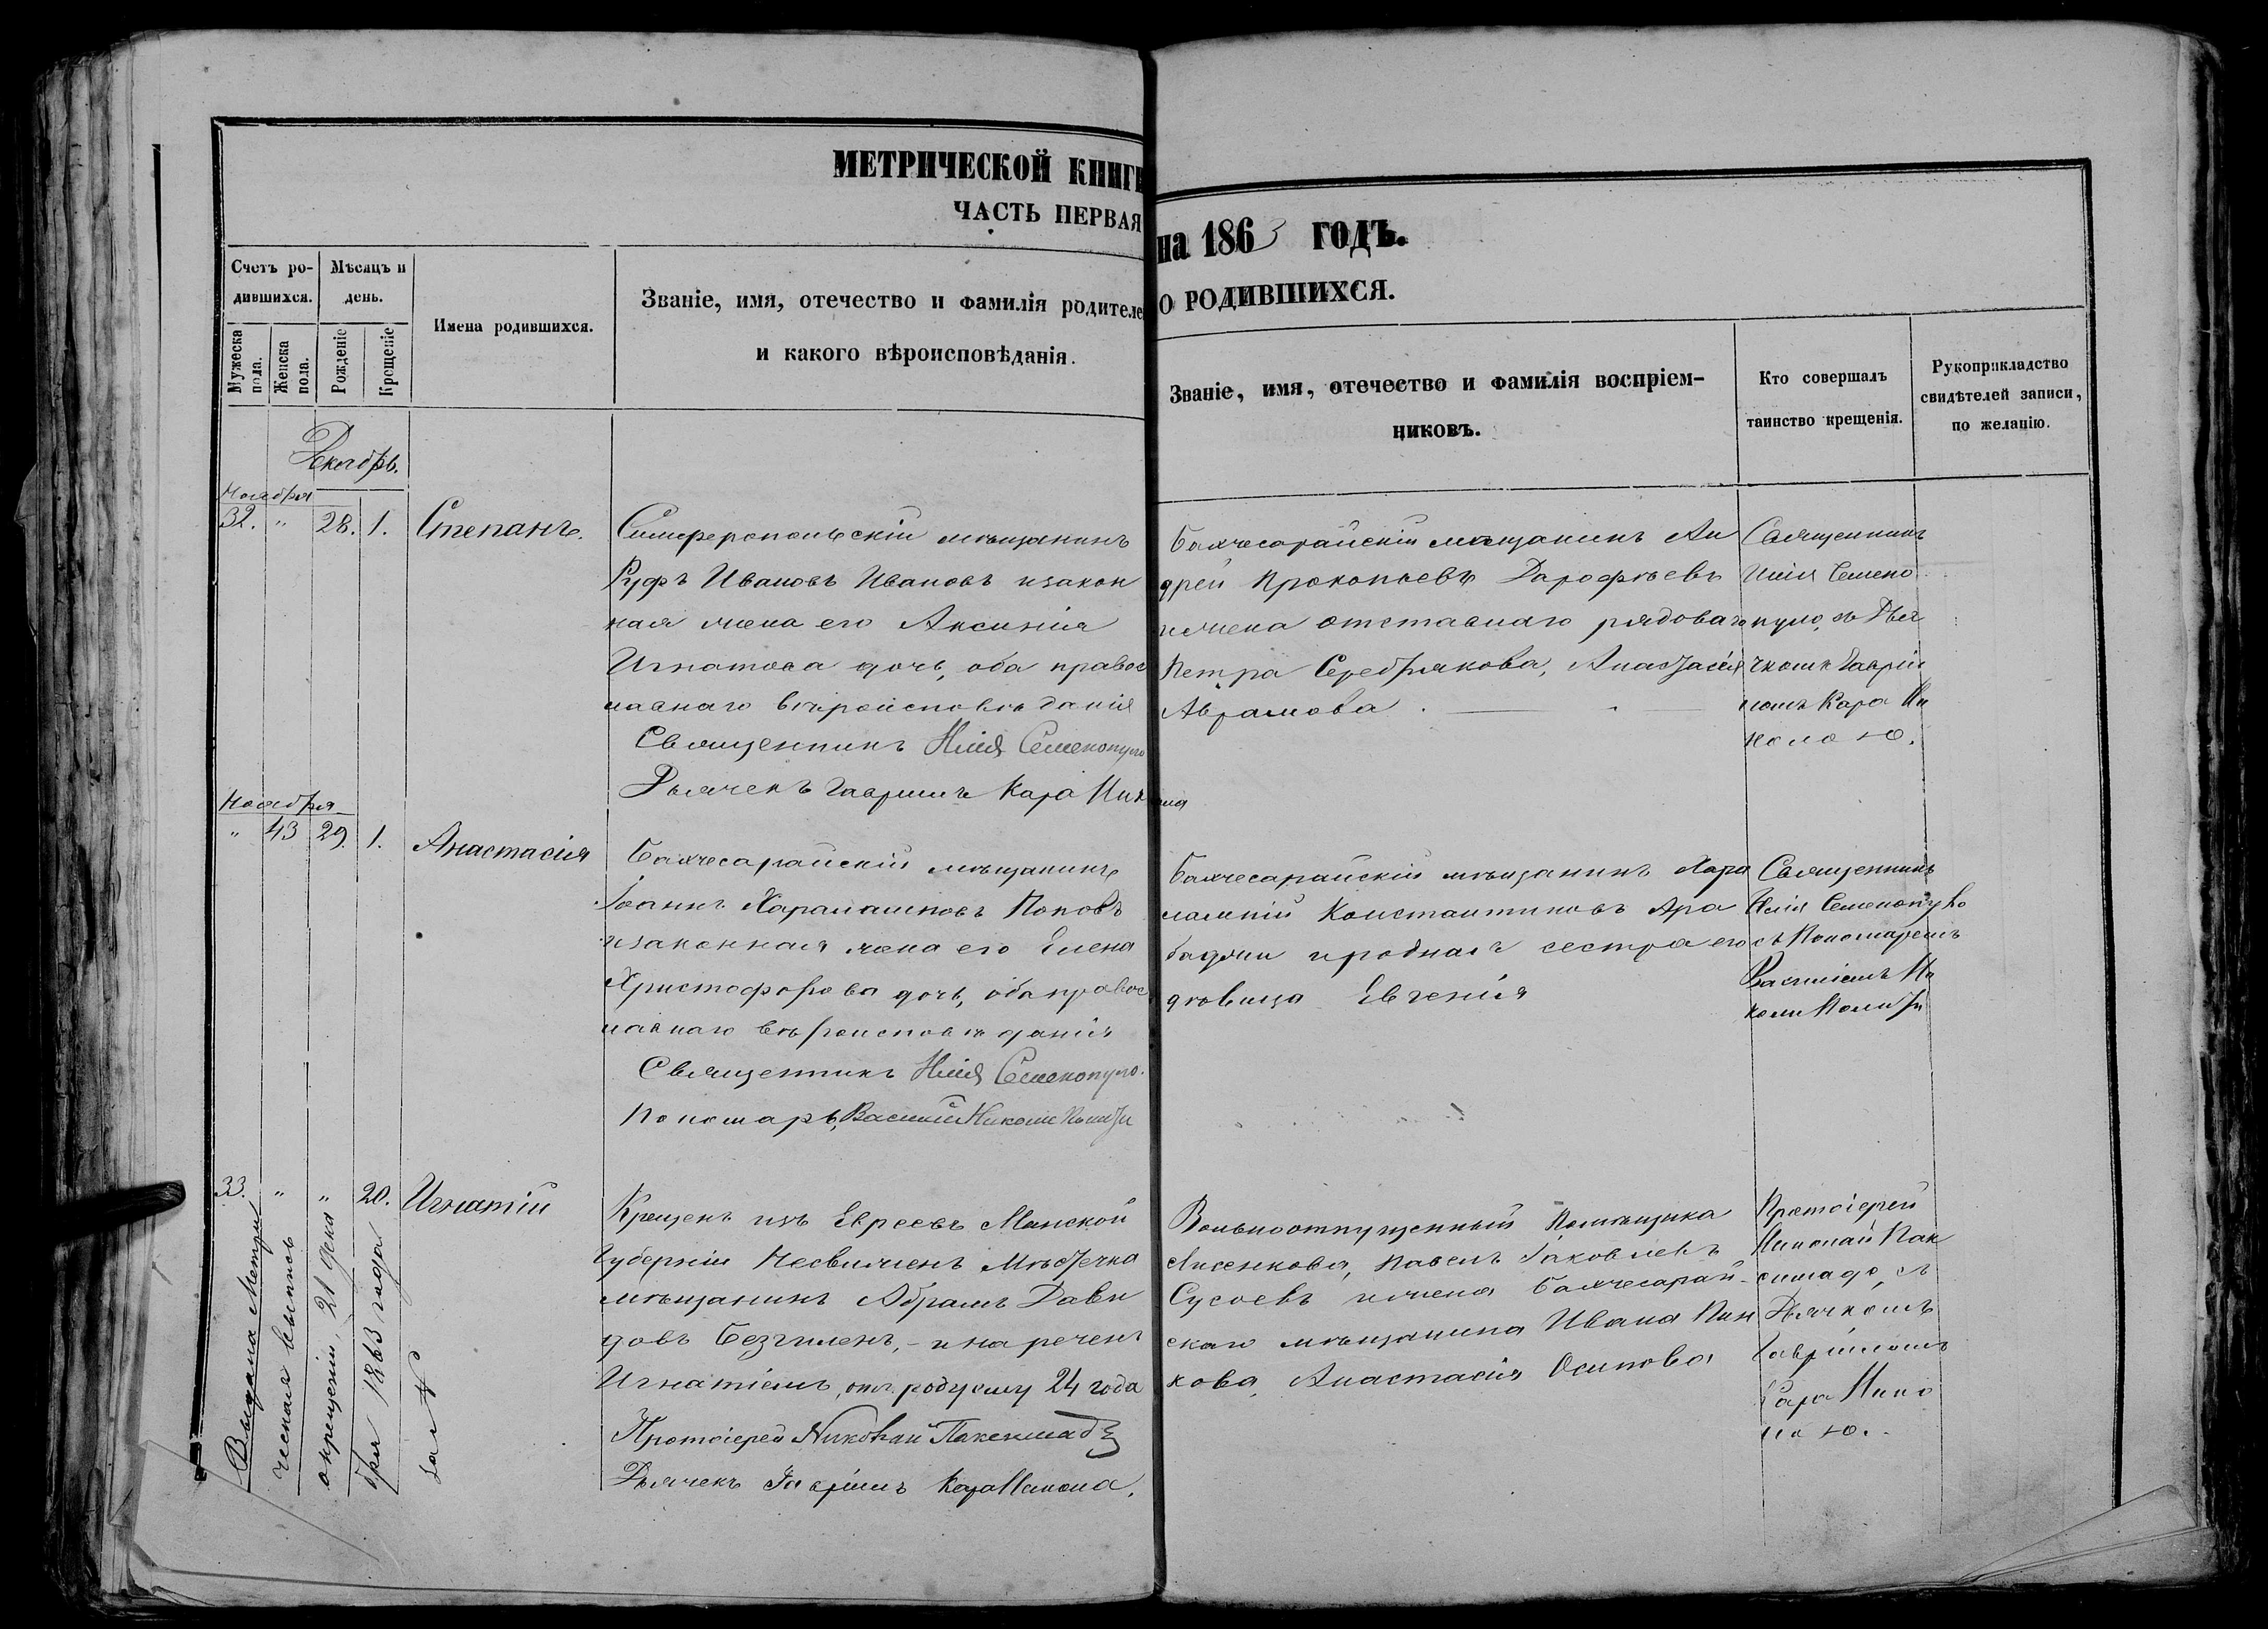 МЕТРИЧЕСКОЙ КНИГИ
ЧАСТЬ ПЕРВАЯ
на 1863 ГОДЪ.
О РОДИВШИХСЯ.
Счетъ ро-
дившихся.
Мужеска пола.
Женска пола.
Мѣсяцъ и
день.
Рожденіе
Крещеніе
Имена родившихся.
Званіе, имя, отечество и фамилія родителе
и какого вѣроисповѣданія.
Званіе, имя, отечество и фамилія воспріем-
никовъ.
Кто совершалъ
таинство крещенія.
Рукоприкладство
свидѣтелей записи,
по желанію.
Декабрь.
Ноября
32. " 28. 1. Степанъ.
Симферопольскій мѣщанинъ
Руфъ Ивановъ Ивановъ и закон
ная жена его Аксинія
Игнатова дочь, оба правос
лавнаго вѣроисповѣданія
Священникъ Илія Семенопуло
Дьячекъ Гавріилъ Кара Никола
Бахчесарайскій мѣщанинъ Ан
дрей Прокопьевъ Дарофѣевъ
и жена отставнаго рядоваго
Петра Серебрякова, Анастасія
Аврамова.
Священникъ
Илія Семено
пуло, съ Дья
чкомъ Гаврі
иломъ Кара Ни
колою.
Ноября
" 43 29. 1. Анастасія
Бахчесарайскій мѣщанинъ
Іоаннъ Харалампіевъ Поповъ
и законная жена его Елена
Христофорова дочь, оба правос
лавнаго вѣроисповѣданія
Священникъ Илія Семенопуло.
Пономарь, Василій Николи
Бахчесарайскій мѣщанинъ Хара
лампій Константиновъ Ара
баджи и родная сестра его
дѣвица Евгенія
Священникъ
Илія Семенопуло
съ Пономаремъ
Василіемъ Ни
коли
33. " " 20. Игнатій
Крещенъ изъ Евреевъ Минской
Губерніи Мѣстечка
мѣщанинъ Абрамъ Дави
довъ - и нареченъ
Игнатіемъ, отъ роду ему 24 года
Протоіерей Николай
Дьячекъ Гавріилъ Кара Никола.
Вольноотпущенный Помѣщика
Лисенкова, Павелъ Іаковлевъ
Сусоевъ и жена Бахчесарай-
скаго мѣщанина Ивана Пин
кова, Анастасія Осипова
Протоіерей
Николай Пак
симадо, съ
Дьячкомъ
Гавріиломъ
Кара Нико
лою.
Выдана Метри
ческая выпись
о крещеніи, 21 дека
бря 1863 года
за №